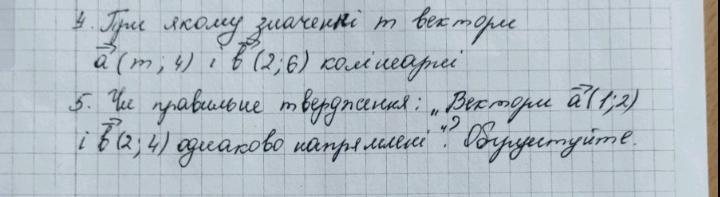 4. При якому значенні m вектори
a⃗ (m; 4) і b⃗ (2; 6) колінеарні
5. Чи правильне твердження: „Вектори a⃗ (1; 2)
і b⃗ (2; 4) однаково напрямлені"? Обґрунтуйте.